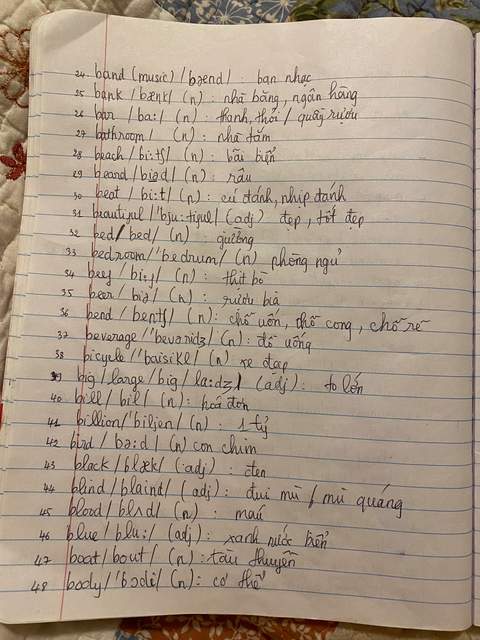 24. band (music) /bænd/ : ban nhạc
25 bank /bænk/ (n) : nhà băng, ngân hàng
26 bar /ba:/ (n) : thanh, thỏi / quầy rượu
27 bathroom/ (n) : nhà tắm
28 beach /bi:tʃ/ (n) : bãi biển
29 beard /biəd/ (n) : râu
30 beat /bi:t/ (n) : cú đánh, nhịp đánh
31 beautiful /'bju:tiful/ (adj) đẹp, tốt đẹp
32 bed /bed/ (n) : giường
33 bedroom /'bedrum/ (n) phòng ngủ
34 beef /bi:f/ (n) : thịt bò
35 beer /biə/ (n) : rượu bia
36 bend /bentʃ/ (n) : chỗ uốn, chỗ cong, chỗ rẽ
37 beverage /'bevəridʒ/ (n) : đồ uống
38 bicycle /'baisikl/ (n) xe đạp
39 big/large /big/la:dʒ/ (adj) : to lớn
40 bill /bil/ (n) : hoá đơn
41 billion /'biljen/ (n) : 1 tỷ
42 bird /bə:d/ (n) con chim
43 black /blæk/ (adj) : đen
44 blind /blaind/ (adj) : đui mù / mù quáng
45 blood /blʌd/ (n) : máu
46 blue /blu:/ (adj) : xanh nước biển
47 boat /bout/ (n) : tàu thuyền
48 body /'bɔdi/ (n) : cơ thể